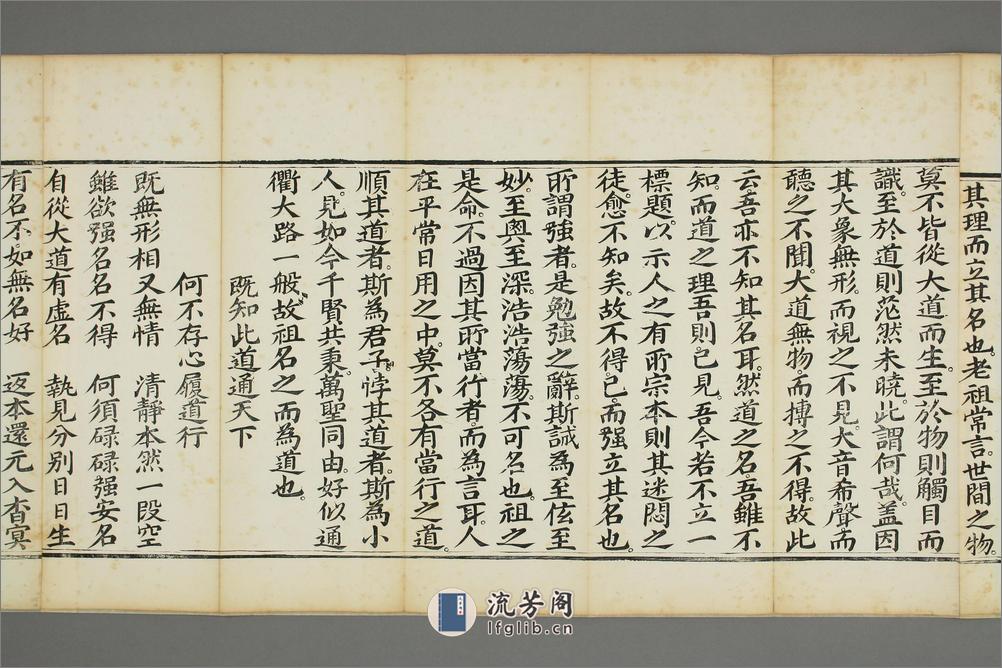 其理而立其名也。老祖常言。世間之物。
莫不皆從大道而生。至於物則觸目而
識。至於道則茫然未曉。此謂何哉。蓋因
其大象無形。而視之不見。大音希聲。而
聽之不聞。大道無物。而搏之不得。故此
云。吾亦不知其名耳。然道之名。吾雖不
知。而道之理吾則已見。吾今若不立一
標題。以示人之有所宗本。則其迷悶之
徒。愈不知矣。故不得已。而强立其名也。
所謂強者。是勉強之辭。斯誠為至玄至
妙。至奧至深。浩浩蕩蕩。不可名也。祖之
是命。不過因其所當行者。而為言耳。人
在平常日用之中。莫不各有當行之道。
順其道者。斯為君子。悖其道者。斯為小
人。見如今千賢共秉。萬聖同由。好似通
衢大路一般。故祖名之而為道也。
既知此道通天下
何不存心履道行
既無形相又無情　清靜本然一段空
雖欲强名名不得　何須碌碌强安名
自從大道有虛名　執見分别日日生
有名不如無名好　返本還元入杳冥
流芳阁
lfglib.cn